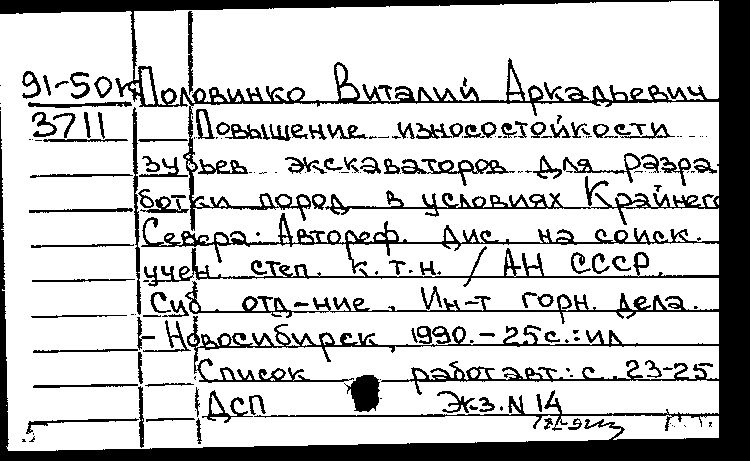 91-50к Половинко, Виталий Аркадьевич
3711 Повышение износостойкости
зубьев экскаваторов для разра-
ботки пород в условиях Крайнего
Севера: Автореф. дис. на соиск.
учен. степ. к.т.н. / АН СССР.
Сиб. отд-ние, Ин-т горн. дела.
- Новосибирск, 1990. - 25с.: ил
Список работ авт.: с. 23-25
ДСП Экз. N 14